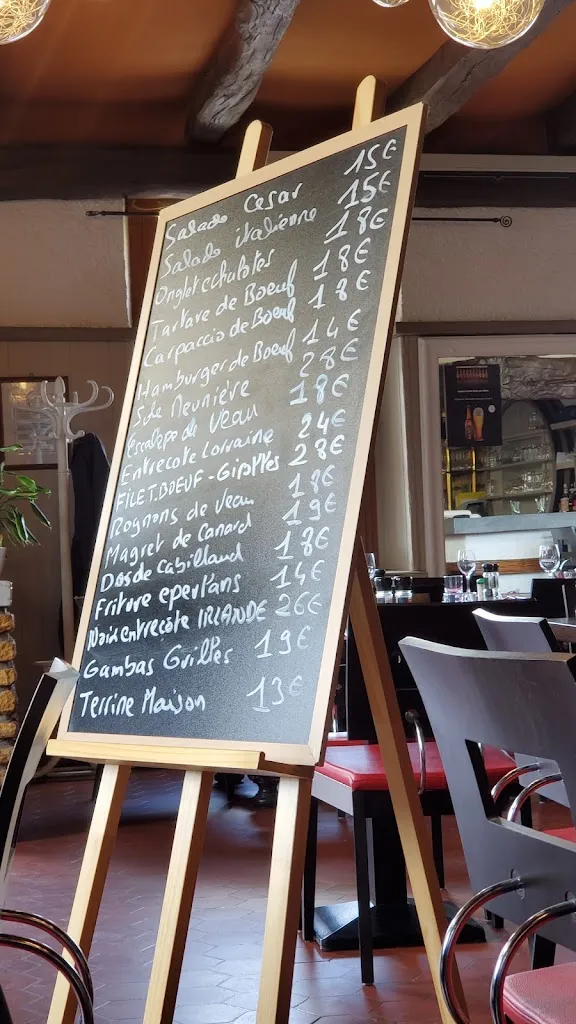 Salade Cesar 15€
Salade italienne 15€
Onglet echalotes 18€
Tartare de Boeuf 18€
Carpaccio de Boeuf 18€
Hamburger de Boeuf 14€
Sole Meunière 28€
Escalope de Veau 18€
Entrecote Lorraine 24€
FILET.BOEUF - Girolles 28€
Rognons de Veau 18€
Magret de Canard 19€
Dos de Cabillaud 18€
Friture eperlans 14€
Noix entrecôte IRLANDE 26€
Gambas Grillées 19€
Terrine Maison 13€